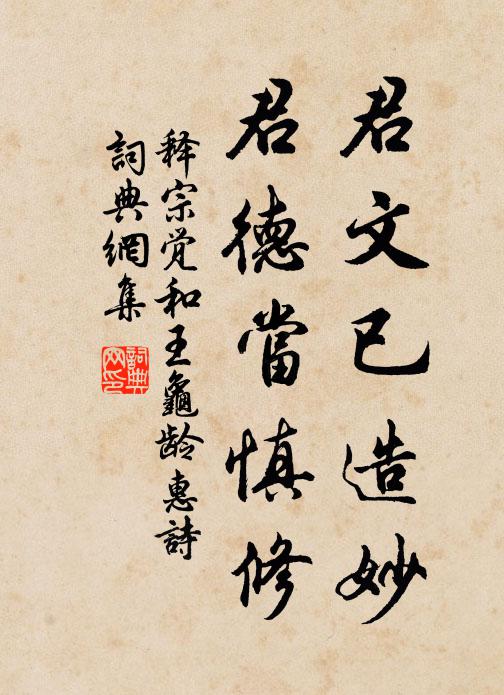 君文已造妙
君德當慎修
释宗觉和王龜龄惠詩
詞典網集
詞典网印